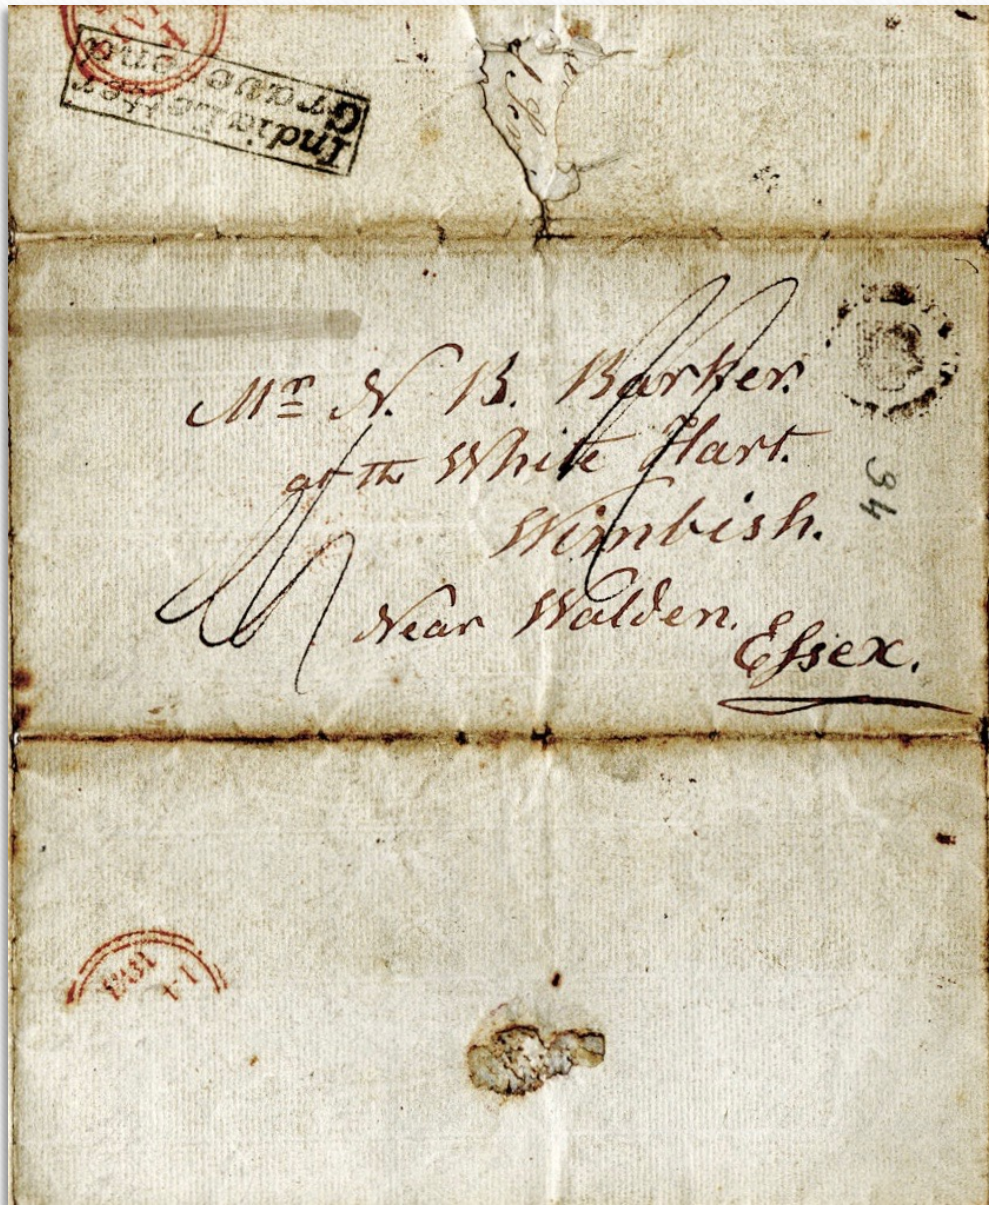 India Letter
Gravesend
Mr N. B. Barker.
at the White Hart.
Wimbish.
Near Walden.
Essex.
94